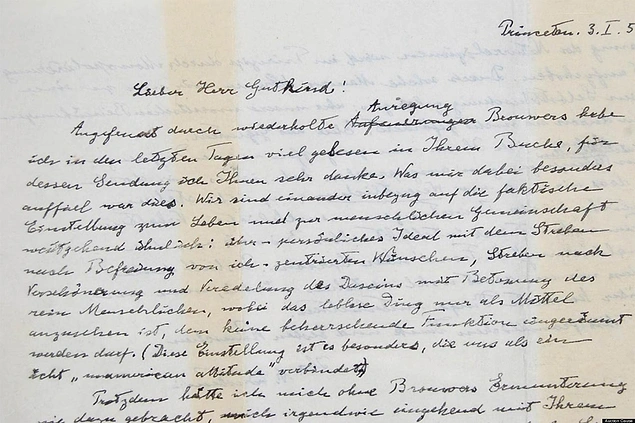 Princeton. 3. I. 5
Lieber Herr Gutkind!
Angefeuert durch wiederholte Anregung Brouwers habe
ich in den letzten Tagen viel gelesen in Ihrem Buche, für
dessen Sendung ich Ihnen sehr danke. Was mir dabei besonders
auffiel war dies. Wir sind einander inbezug auf die faktische
Einstellung zum Leben und zur menschlichen Gemeinschaft
weitgehend ähnlich: über-persönliches Ideal mit dem Streben
nach Befreiung von ich-zentrierten Wünschen, Streben nach
Verschönerung und Veredelung des Daseins mit Betonung des
rein Menschlichen, wobei das leblose Ding nur als Mittel
anzusehen ist, dem keine beherrschende Funktion eingeräumt
werden darf. (Diese Einstellung ist es besonders, die uns als ein
ächt „unamerican attitude" verbindet)
Trotzdem hätte ich mich ohne Brouwers Ermunterung
nie dazu gebracht, mich irgendwie eingehend mit Ihrem